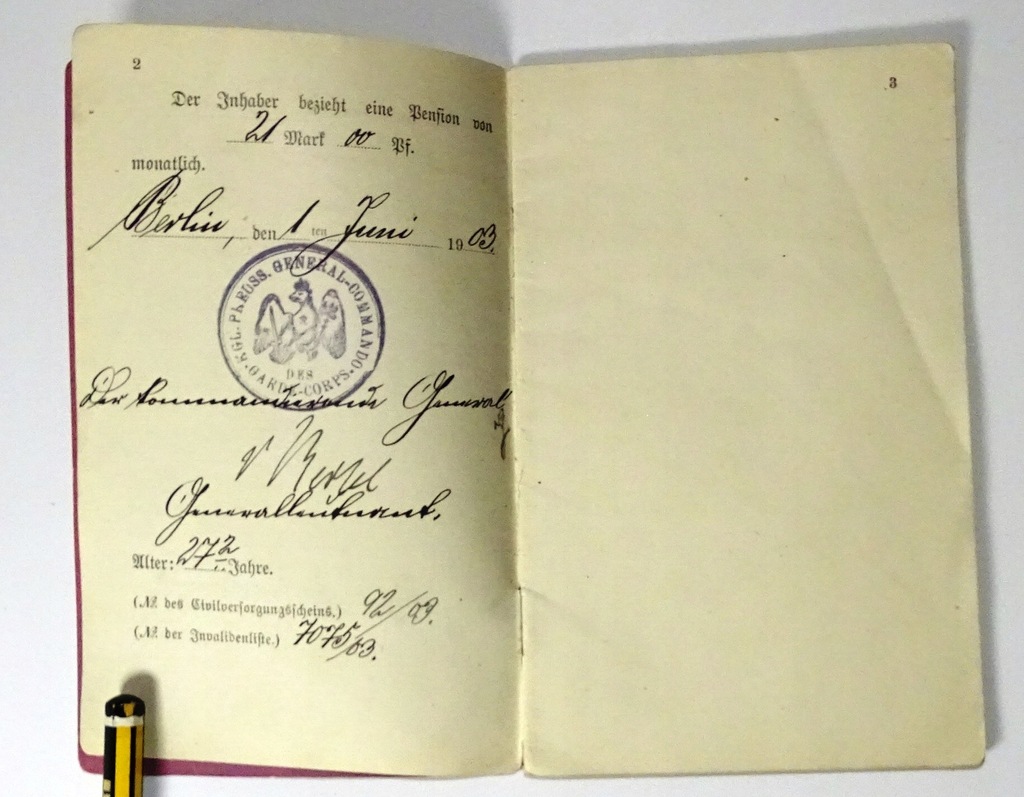 2
Der Inhaber bezieht eine Pension von
21 Mark 00 Pf.
monatlich.
Berlin, den 1 ten Juni 1903.
KGL. PREUSS. GENERAL-COMMANDO
DES
GARDE-CORPS.
Der kommandierende General
v
Generalleutnant.
Alter: 27 2 Jahre.
(№ des Civilversorgungsscheins.) 92/03.
(№ der Invalidenliste.) 7075/03.
3